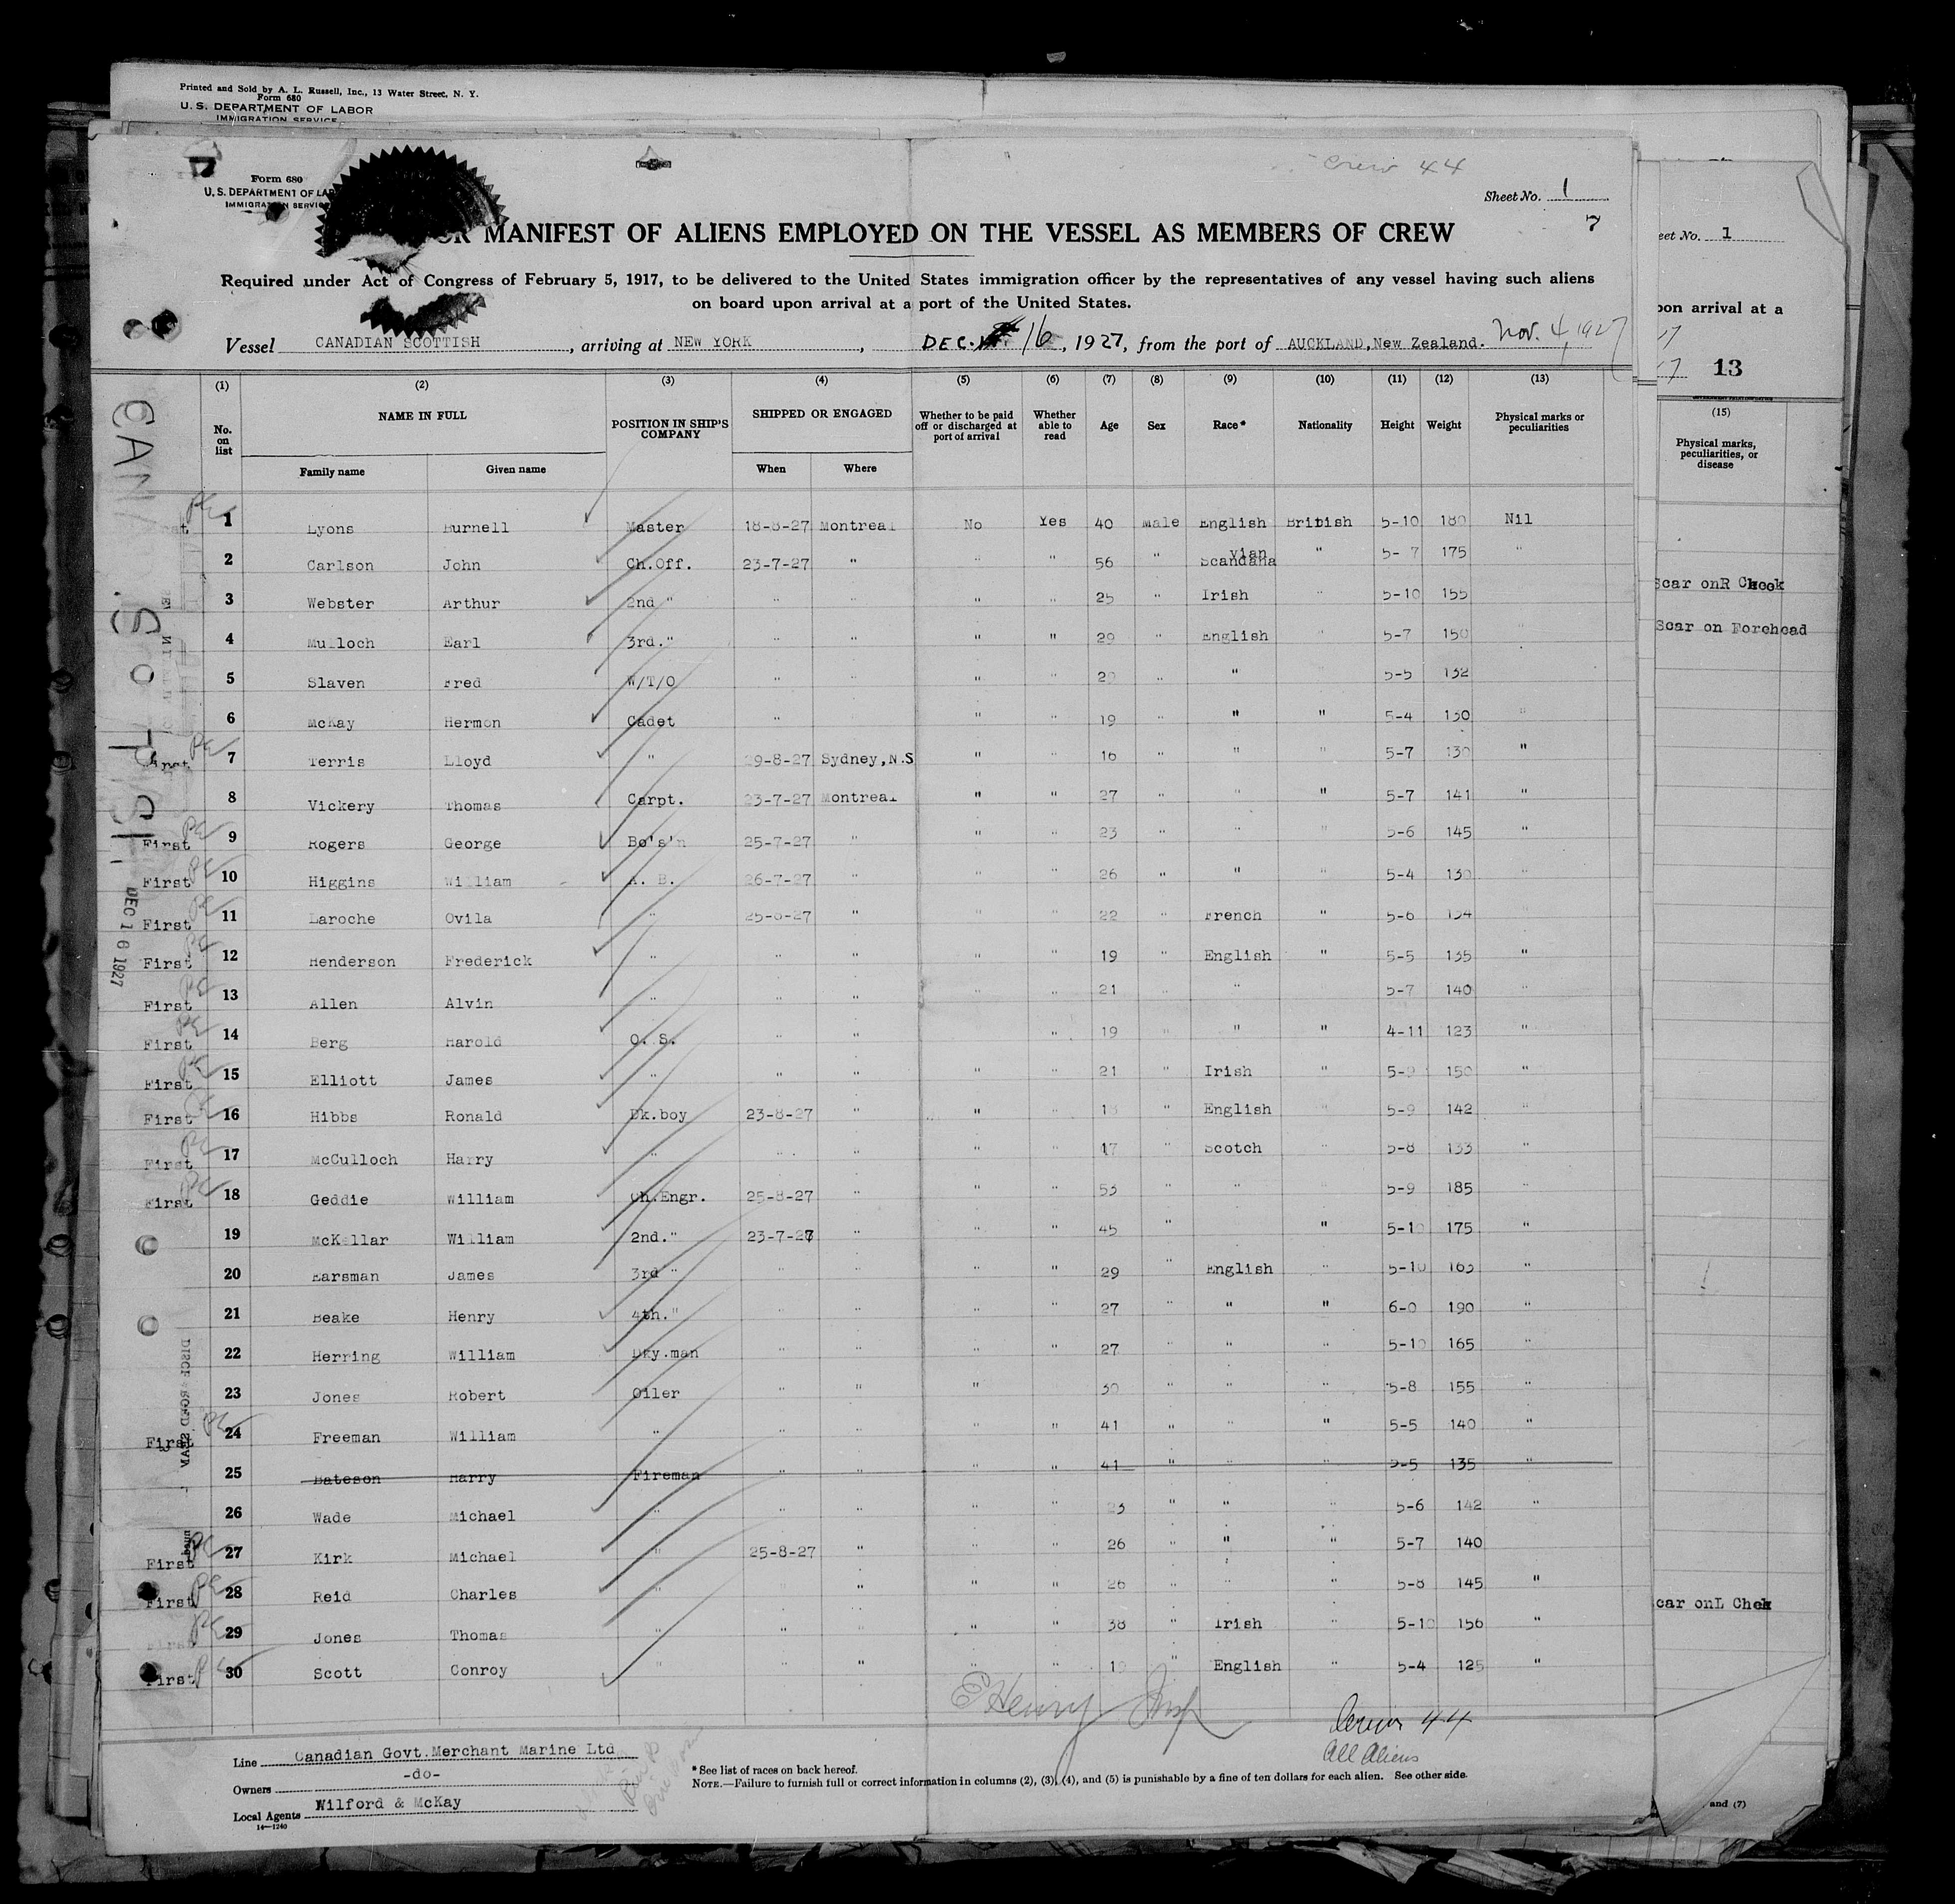 Printed and Sold by A. L. Russell, Inc., 13 Water Street, N. Y.
Form 680
U. S. DEPARTMENT OF LABOR
IMMIGRATION SERVICE
Crew 44
Form 680
U. S. DEPARTMENT OF LAB
IMMIGRATION SERVICE
Sheet No. 1
7
OR MANIFEST OF ALIENS EMPLOYED ON THE VESSEL AS MEMBERS OF CREW
Required under Act of Congress of February 5, 1917, to be delivered to the United States immigration officer by the representatives of any vessel having such aliens
on board upon arrival at a port of the United States.
Vessel CANADIAN SCOTTISH, arriving at NEW YORK, DEC. 16, 1927, from the port of AUCKLAND, New Zealand. Nov. 4, 1927
(1) (2) (3) (4) (5) (6) (7) (8) (9) (10) (11) (12) (13)
No. on list NAME IN FULL POSITION IN SHIP'S COMPANY SHIPPED OR ENGAGED Whether to be paid off or discharged at port of arrival Whether able to read Age Sex Race* Nationality Height Weight Physical marks or peculiarities
Family name Given name When Where
1 Lyons Burnell Master 18-8-27 Montreal No Yes 40 Male English British 5-10 180 Nil
2 Carlson John Ch.Off. 23-7-27 " " " 56 " Scandanavian " 5-7 175 "
3 Webster Arthur 2nd " " " " " 25 " Irish " 5-10 155
4 Mulloch Earl 3rd." " " " " 29 " English " 5-7 150 "
5 Slaven Fred W/T/O " " " " " " " 5-5 132
6 McKay Hermon Cadet " " " 19 " " " 5-4 130 "
7 Terris Lloyd " 29-8-27 Sydney,N.S " " 16 " " " 5-7 130 "
8 Vickery Thomas Carpt. 23-7-27 Montreal " " 27 " " " 5-7 141 "
First 9 Rogers George Bo's'n 25-7-27 " " " 23 " " 5-6 145 "
First 10 Higgins William A. B. 26-7-27 " " " 26 " " " 5-4 130 "
First 11 Laroche Ovila " " " " 22 " French " 5-6 134
First 12 Henderson Frederick " " " " " 19 " English " 5-5 135 "
First 13 Allen Alvin " " " " " 21 " " 5-7 140 "
First 14 Berg Harold O. S. " " " 19 " " " 4-11 123 "
First 15 Elliott James " " " " " 21 " Irish " 5-9 150 "
First 16 Hibbs Ronald Dk.boy 23-8-27 " " " " English " 5-9 142 "
First 17 McCulloch Harry " " " " " 17 " Scotch " 5-8 133 "
First 18 Geddie William Ch.Engr. 25-8-27 " " " 53 " " " 5-9 185 "
19 McKellar William 2nd." 23-7-27 " " " 45 " " 5-10 175 "
20 Earsman James 3rd " " " " " 29 " English " 5-10 163 "
21 Beake Henry 4th." " " " " 27 " " " 6-0 190 "
22 Herring William Dky.man " " " " 27 " " " 5-10 165 "
23 Jones Robert Oiler " " " 30 " " " 5-8 155 "
First 24 Freeman William " " " " " 41 " " " 5-5 140 "
25 Bateson Harry Fireman " " " " 41 " " " 5-5 135 "
26 Wade Michael " " " " " 23 " " " 5-6 142 "
First 27 Kirk Michael " 25-8-27 " " " 26 " " " 5-7 140
First 28 Reid Charles " " " " 26 " " " 5-8 145 "
First 29 Jones Thomas " " " " " 38 " Irish 5-10 156 "
First 30 Scott Conroy " " " " " " English " 5-4 125 "
Henry Insp
Crew 44
All Aliens
Line Canadian Govt.Merchant Marine Ltd
Owners -do-
Local Agents Wilford & McKay
14—1240
* See list of races on back hereof.
NOTE.—Failure to furnish full or correct information in columns (2), (3), (4), and (5) is punishable by a fine of ten dollars for each alien. See other side.
DEC 16 1927
eet No. 1
pon arrival at a
13
(15)
Physical marks, peculiarities, or disease
Scar onR Cheek
Scar on Forehead
car onL Chek
, and (7)